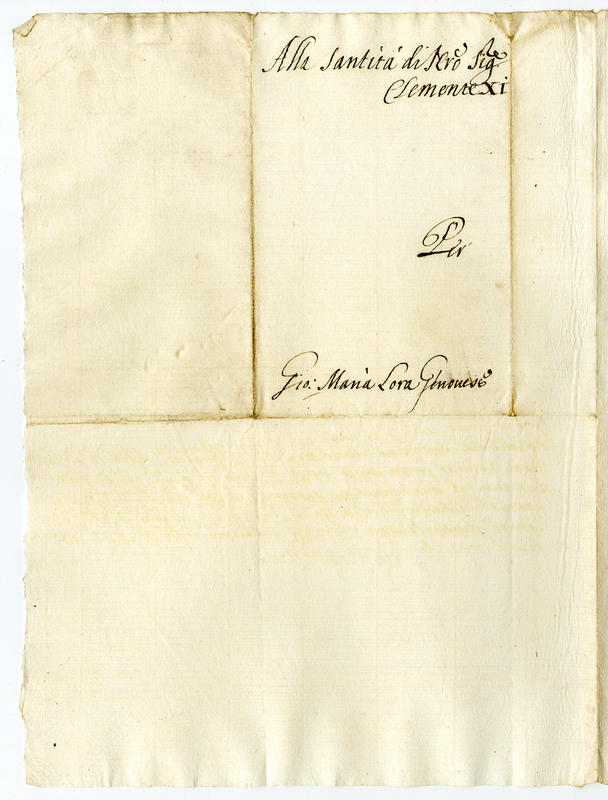 Alla Santità di Nrō Sigre
Clemente XI
Per
Gio: Maria Lora Genovese